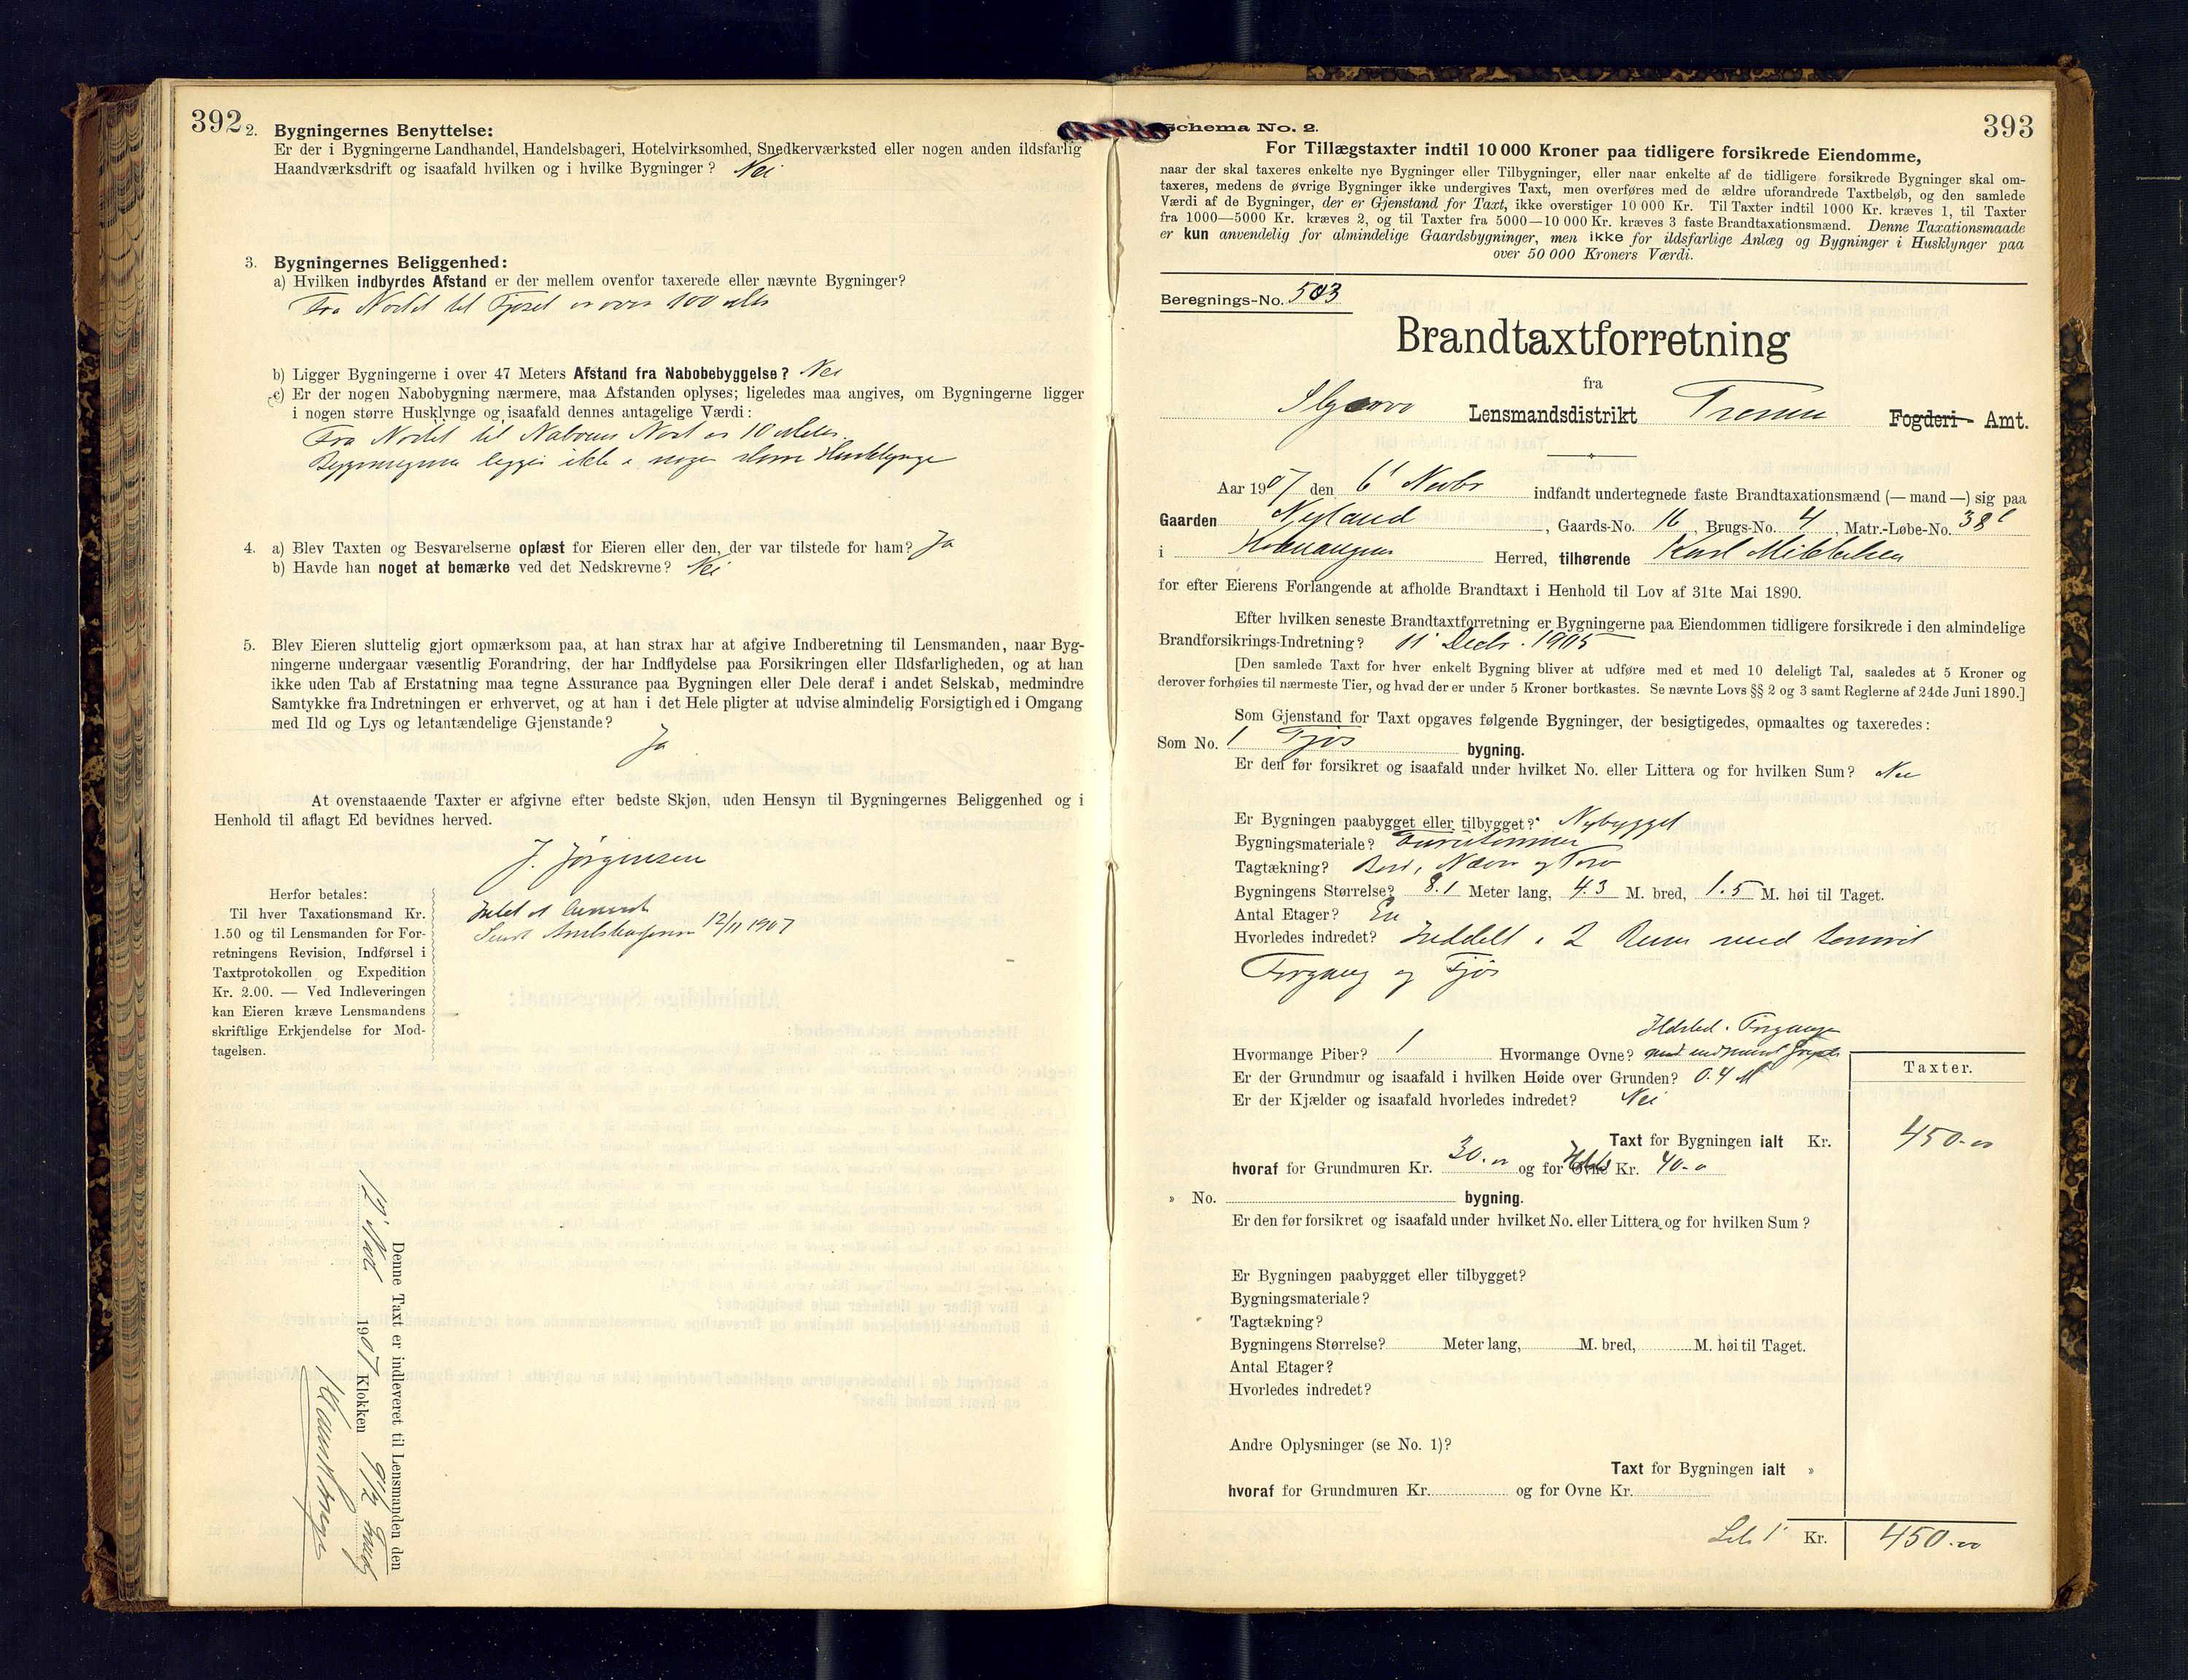 392
2. Bygningernes Benyttelse:
Er der i Bygningerne Landhandel, Handelsbageri, Hotelvirksomhed, Snedkerværksted eller nogen anden ildsfarlig
Haandværksdrift og isaafald hvilken og i hvilke Bygninger? Nei
3. Bygningernes Beliggenhed:
a) Hvilken indbyrdes Afstand er der mellem ovenfor taxerede eller nævnte Bygninger?
Fra til Fjøset er over 100
b) Ligger Bygningerne i over 47 Meters Afstand fra Nabobebyggelse? Nei
c) Er der nogen Nabobygning nærmere, maa Afstanden oplyses; ligeledes maa angives, om Bygningerne ligger
i nogen større Husklynge og isaafald dennes antagelige Værdi:
Fra til Naboens er 10
Bygningerne ligger ikke i nogen større Husklynge
4. a) Blev Taxten og Besvarelserne oplæst for Eieren eller den, der var tilstede for ham? Ja
b) Havde han noget at bemærke ved det Nedskrevne? Nei
5. Blev Eieren sluttelig gjort opmærksom paa, at han strax har at afgive Indberetning til Lensmanden, naar Byg-
ningerne undergaar væsentlig Forandring, der har Indflydelse paa Forsikringen eller Ildsfarligheden, og at han
ikke uden Tab af Erstatning maa tegne Assurance paa Bygningen eller Dele deraf i andet Selskab, medmindre
Samtykke fra Indretningen er erhvervet, og at han i det Hele pligter at udvise almindelig Forsigtighed i Omgang
med Ild og Lys og letantændelige Gjenstande?
Ja
At ovenstaaende Taxter er afgivne efter bedste Skjøn, uden Hensyn til Bygningernes Beliggenhed og i
Henhold til aflagt Ed bevidnes herved.
J. Jørgensen
12/11 1907
Herfor betales:
Til hver Taxationsmand Kr.
1.50 og til Lensmanden for For-
retningens Revision, Indførsel i
Taxtprotokollen og Expedition
Kr. 2.00. — Ved Indleveringen
kan Eieren kræve Lensmandens
skriftlige Erkjendelse for Mod-
tagelsen.
Denne Taxt er indleveret til Lensmanden den
12' Nov. 1907 Klokken 9 1/2 Formdg
393
Schema No. 2.
For Tillægstaxter indtil 10 000 Kroner paa tidligere forsikrede Eiendomme,
naar der skal taxeres enkelte nye Bygninger eller Tilbygninger, eller naar enkelte af de tidligere forsikrede Bygninger skal om-
taxeres, medens de øvrige Bygninger ikke undergives Taxt, men overføres med de ældre uforandrede Taxtbeløb, og den samlede
Værdi af de Bygninger, der er Gjenstand for Taxt, ikke overstiger 10 000 Kr. Til Taxter indtil 1000 Kr. kræves 1, til Taxter
fra 1000—5000 Kr. kræves 2, og til Taxter fra 5000—10 000 Kr. kræves 3 faste Brandtaxationsmænd. Denne Taxationsmaade
er kun anvendelig for almindelige Gaardsbygninger, men ikke for ildsfarlige Anlæg og Bygninger i Husklynger paa
over 50 000 Kroners Værdi.
Beregnings-No. 503
Brandtaxtforretning
fra
Skjervø Lensmandsdistrikt Tromsø Fogderi Amt.
Aar 1907 den 6' Novbr indfandt undertegnede faste Brandtaxationsmænd (—mand—) sig paa
Gaarden Nyland, Gaards-No. 16, Brugs-No. 4, Matr.-Løbe-No. 38
i Kvænangen Herred, tilhørende Karl Mikkelsen
for efter Eierens Forlangende at afholde Brandtaxt i Henhold til Lov af 31te Mai 1890.
Efter hvilken seneste Brandtaxtforretning er Bygningerne paa Eiendommen tidligere forsikrede i den almindelige
Brandforsikrings-Indretning? 11' Decbr. 1905
[Den samlede Taxt for hver enkelt Bygning bliver at udføre med et med 10 deleligt Tal, saaledes at 5 Kroner og
derover forhøies til nærmeste Tier, og hvad der er under 5 Kroner bortkastes. Se nævnte Lovs §§ 2 og 3 samt Reglerne af 24de Juni 1890.]
Som Gjenstand for Taxt opgaves følgende Bygninger, der besigtigedes, opmaaltes og taxeredes:
Som No. 1 Fjøs bygning.
Er den før forsikret og isaafald under hvilket No. eller Littera og for hvilken Sum? Nei
Er Bygningen paabygget eller tilbygget? Nybygget
Bygningsmateriale? Furutømmer
Tagtækning? Bord, Næver og Torv
Bygningens Størrelse? 8.1 Meter lang, 4.3 M. bred, 1.5 M. høi til Taget.
Antal Etager? En
Hvorledes indredet? Inddelt i 2 Rum med
Forgang og Fjøs
Ildsted i Forgangen
Hvormange Piber? 1 Hvormange Ovne? med
Er der Grundmur og isaafald i hvilken Høide over Grunden? 0.4 M
Er der Kjælder og isaafald hvorledes indredet? Nei
Taxter.
Taxt for Bygningen ialt Kr. 450.00
hvoraf for Grundmuren Kr. 30.00 og for Ovne Kr. 40.0
» No. bygning.
Er den før forsikret og isaafald under hvilket No. eller Littera og for hvilken Sum?
Er Bygningen paabygget eller tilbygget?
Bygningsmateriale?
Tagtækning?
Bygningens Størrelse? Meter lang, M. bred, M. høi til Taget.
Antal Etager?
Hvorledes indredet?
Andre Oplysninger (se No. 1)?
Taxt for Bygningen ialt »
hvoraf for Grundmuren Kr. og for Ovne Kr.
Kr. 450.00